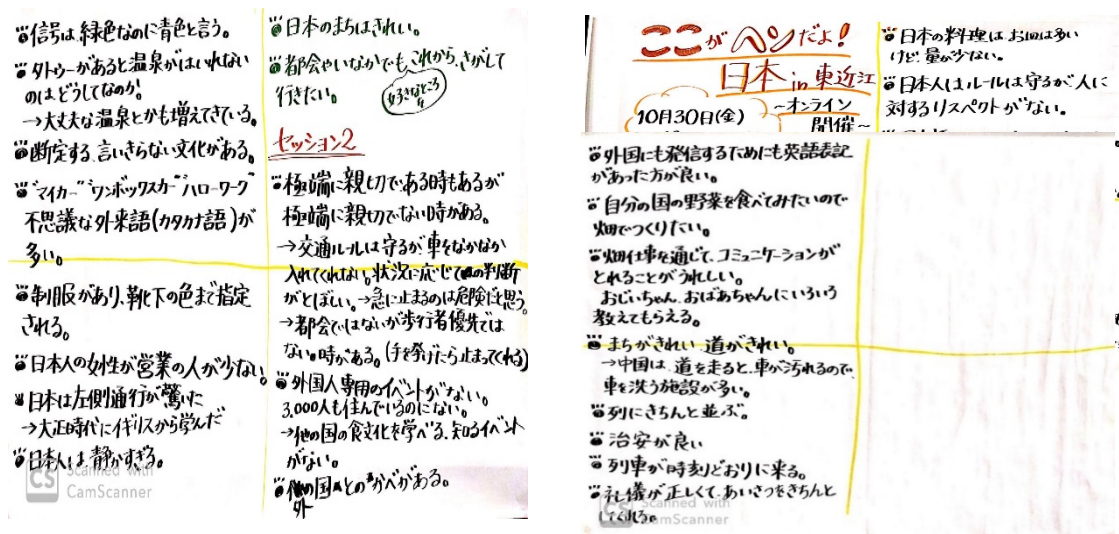 信号は、緑色なのに青色と言う。
タトゥーがあると温泉がはいれない
のはどうしてなのか!
→大丈夫な温泉とかも増えてきている。
断定する、言いきらない文化がある。
"マイカー""ワンボックスカー""ハローワーク"
不思議な外来語(カタカナ語)が
多い。
制服があり、靴下の色まで指定
される。
日本人の女性が営業の人が少ない。
日本は左側通行が驚いた
→大正時代にイギリスから学んだ
日本人は、静かすぎる。
CS Scanned with
CamScanner
日本のまちはきれい。
都会やいなかでも、これから、さがして
行きたい。
好きなところ
を
セッション2
極端に親切である時もあるが
極端に親切でない時がある。
→交通ルールは守るが車をなかなか
入れてくれない。状況に応じての判断
がとぼしい。→急に止まるのは危険だと思う。
→都会ではないが歩行者優先では
ない。時がある。(手を挙げたら止まってくれる)
外国人専用のイベントがない。
3,000人も住んでいるのにない。
→他の国の食文化を学べる、知るイベント
がない。
の国人との"かべ"がある。
外
ここがヘンだよ!
日本in東近江
10月30日(金)
~オンライン
開催~
日本の料理は、お皿は多い
けど、量が少ない。
日本人はルールは守るが、人に
対するリスペクトがない。
外国にも発信するためにも英語表記
があった方が良い。
自分の国の野菜を食べてみたいので
畑でつくりたい。
畑仕事を通じて、コミュニケーションが
とれることがうれしい。
おじいちゃん、おばあちゃんにいろいろ
教えてもらえる。
まちがきれい 道がきれい。
→中国は、道を走ると、車が汚れるので、
車を洗う施設が多い。
列にきちんと並ぶ。
治安が良い
列車が時刻どおりに来る。
礼儀が正しくて、あいさつをきちんと
してくれる。
CS Scanned with
CamScanner